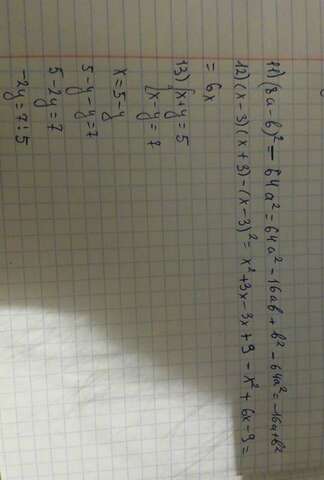 11) (8a-b)² - 64a² = 64a² - 16ab + b² - 64a² = -16a+b²
12) (x-3)(x+3)-(x-3)² = x²+3x-3x+9 - x² + 6x-9 =
= 6x
13) {x+y=5
{x-y=7
x=5-y
5-y-y=7
5-2y=7
-2y=7:5